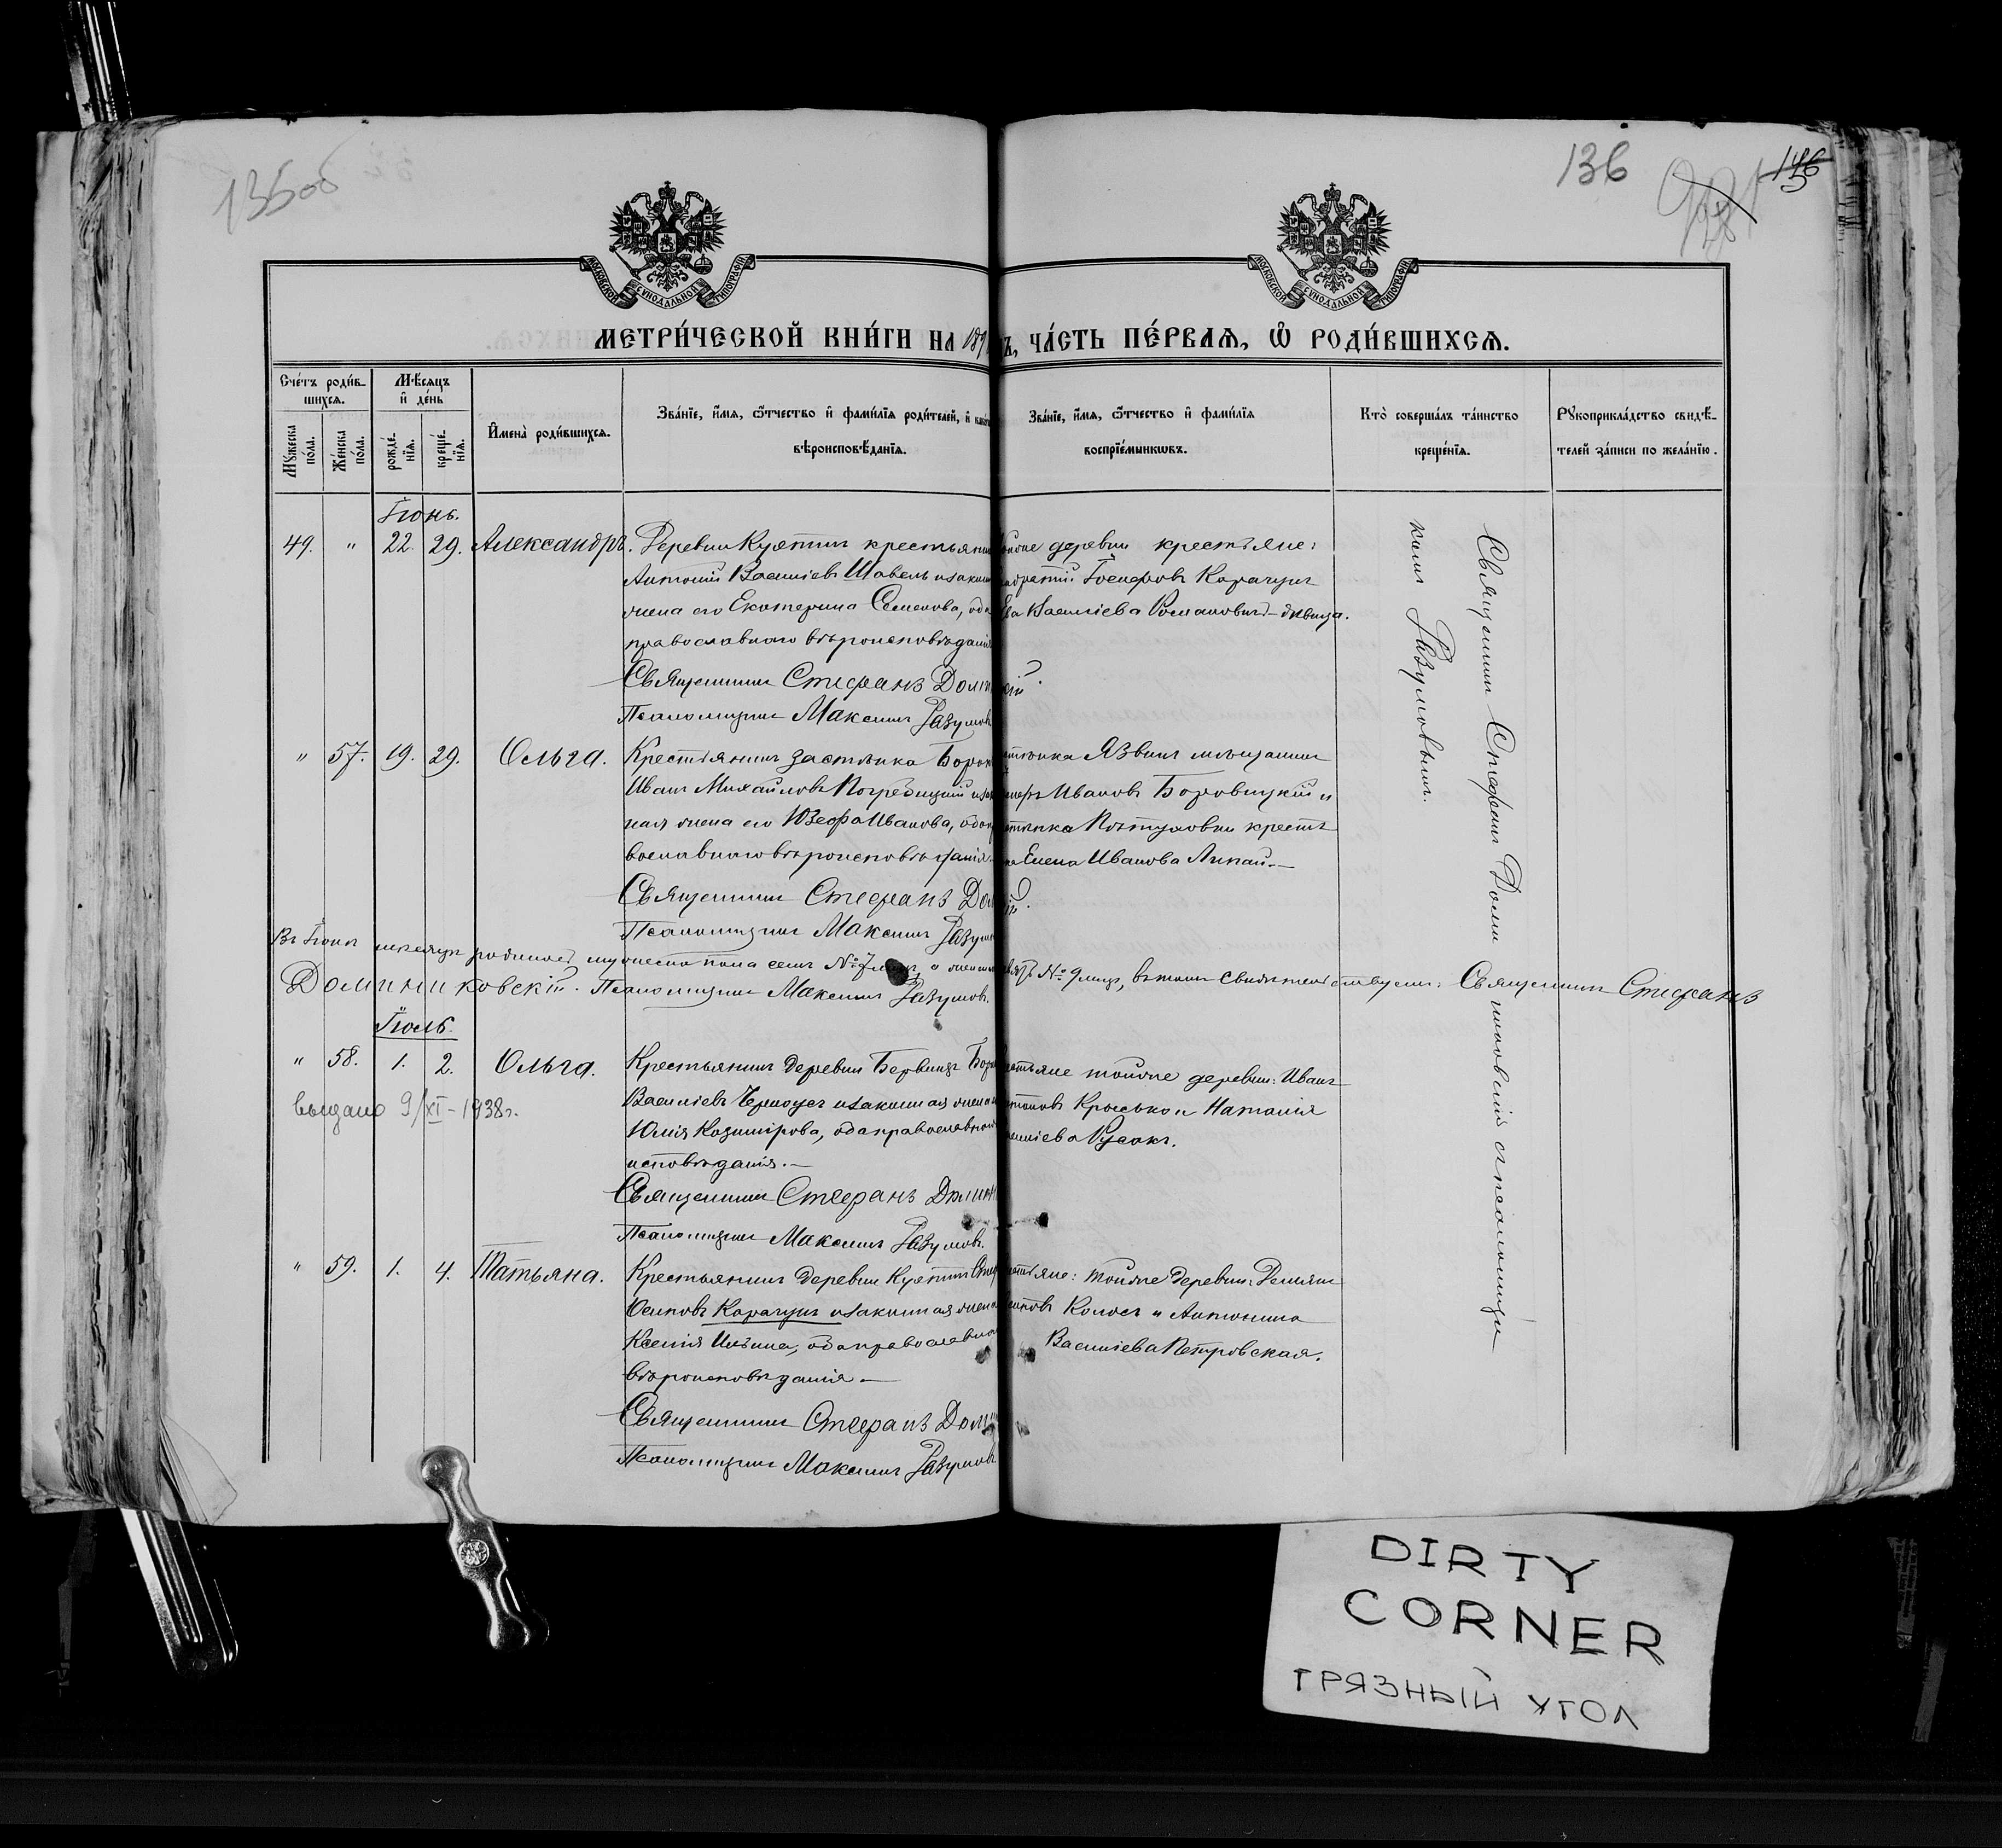 135об
136
146
МОСКОВСКОЙ СѴНОДАЛЬНОЙ ТИПОГРАФІИ
МОСКОВСКОЙ СѴНОДАЛЬНОЙ ТИПОГРАФІИ
МЕТРИ́ЧЕСКОЙ КНИ́ГИ НА 189
Ъ, ЧА́СТЬ ПЕ́РВАЯ, Ѡ҆ РОДИ́ВШИХСЯ.
Сче́тъ роди́в-
шихся.
Мѣ́сяцъ
и҆ де́нь
Мꙋ́жеска по́ла.
Же́нска по́ла.
рожде́-нїя.
креще́-нїя.
И҆мена̀ роди́вшихся.
Зва́нїе, и҆́мя, ѻ҆́тчество и҆ фами́лїя роди́телей, и҆
вѣроисповѣ́данїя.
Зва́нїе, и҆́мя, ѻ҆́тчество и҆ фами́лїя
воспрїе́мникωвъ.
Кто̀ соверша́лъ та́инство
креще́нїя.
Рꙋкоприкла́дство свидѣ́-
телей за́писи по жела́нїю.
Іюнь.
49. " 22. 29. Александръ. Деревни Куятинъ крестьянинъ
Антоній Васильевъ Шавель и законная
жена его Екатерина Семенова, оба
православнаго вѣроисповѣданія
Священникъ Стефанъ Доминиковскій.
Псаломщикъ Максимъ Разумовъ
тойже деревни крестьяне:
Іосифовъ Карачунъ
Ева Васильева Романовичъ - дѣвица.
Священникъ Стефанъ Доминиковскій съ псаломщи
комъ Разумовымъ.
" 57. 19. 29. Ольга. Крестьянинъ застѣнка
Иванъ Михайловъ Погребицкій и закон
ная жена его Юзефа Иванова, оба пра
вославнаго вѣроисповѣданія.
Священникъ Стефанъ
Псаломщикъ Максимъ
застѣнка Язвинъ мѣщанинъ
Ивановъ Боровицкій и
крестьянка
Елена Иванова Липай.—
Въ Іюнѣ мѣсяцѣ родилось мужеска пола семь №7 лицъ, а женска девять №9 лицъ, въ томъ свидѣтельствуемъ: Священникъ Стефанъ
Доминиковскій. Псаломщикъ Максимъ Разумовъ.
Іюль.
" 58. 1. 2. Ольга. Крестьянинъ деревни
Васильевъ Черноусъ и законная жена
Юлія Казимірова, оба православнаго
исповѣданія.—
Священникъ Стефанъ
Псаломщикъ Максимъ Разумовъ.
Крестьяне тойже деревни: Иванъ
Крысько и Наталія
Васильева Русакъ.
выдано 9/XI-1938г.
" 59. 1. 4. Татьяна. Крестьянинъ деревни Куятинъ
Осиповъ Карачунъ и законная жена
Ксенія Ильина, оба православнаго
вѣроисповѣданія.—
Священникъ Стефанъ
Псаломщикъ Максимъ Разумовъ
Крестьяне: тойже деревни:
Колосъ и Антонина
Васильева Петровская.
DIRTY
CORNER
ГРЯЗНЫЙ УГОЛ